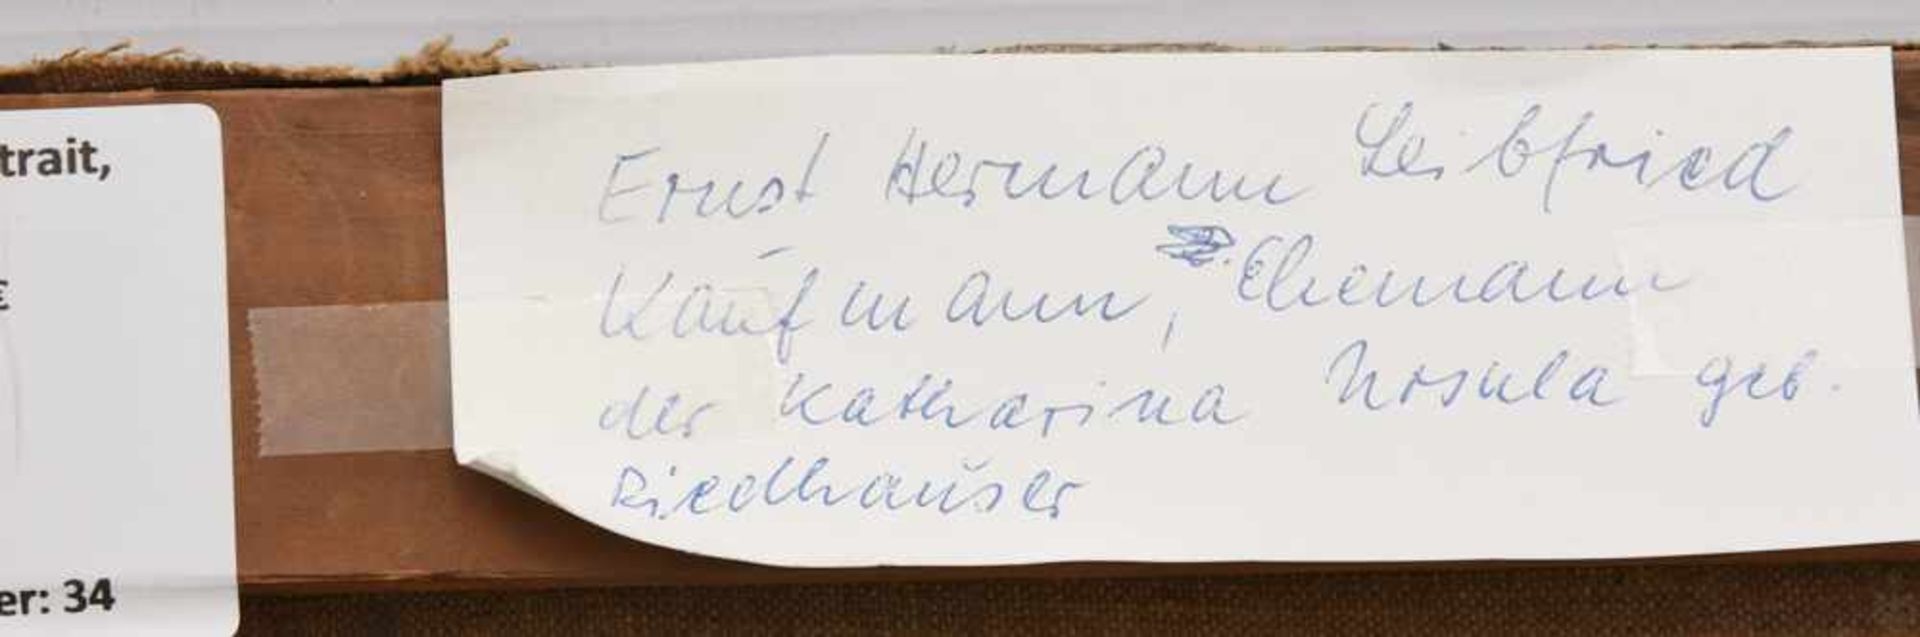 trait,
€
er: 34
Ernst Hermann Leibfried
Kaufmann, Ehemann
der Katharina Ursula geb.
Riedhauser